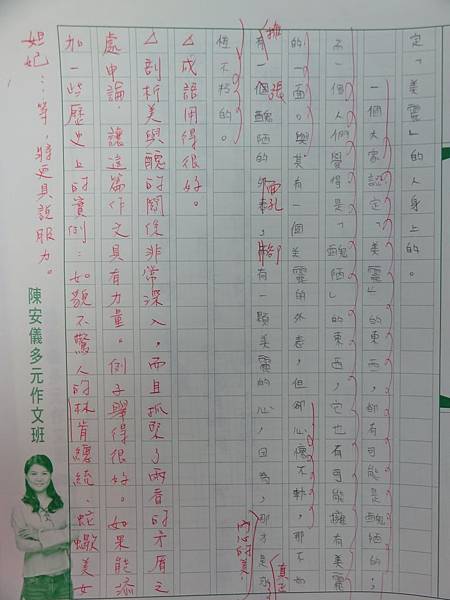 定「美麗」的人身上的。
一個大家認定「美麗」的東西,卻有可能是醜陋的;
一個人們覺得是「醜陋」的東西,它也有可能擁有美麗
的一面。與其有一個美麗的外表,但卻心懷不軌,那不如
擁
有一個醜陋的外表,卻有一顆美麗的心,因為,那才是永
張
面孔
卻
真正
內心的美
恆不朽的。
△成語用得很好。
△剖析美與醜的關係非常深入,而且抓緊了兩者的矛盾之
處申論,讓這篇作文具有力量。例子舉得很好。如果能添
加一些歷史上的實例:如貌不驚人的林肯總統、蛇蠍美女
妲妃…等,將更具說服力。
陳安儀多元作文班